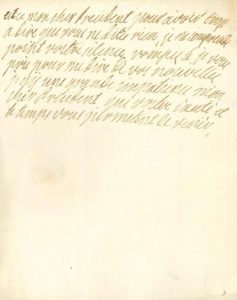 mon cher President pour avoir
a dire que vous ne dite rien, je ne comprends
point votre silence, rompes le, je vous
prie pour me dire de vos nouvelles
j'ay une grande impatience mon
cher President, que votre santé et
le temps vous permettent de venir